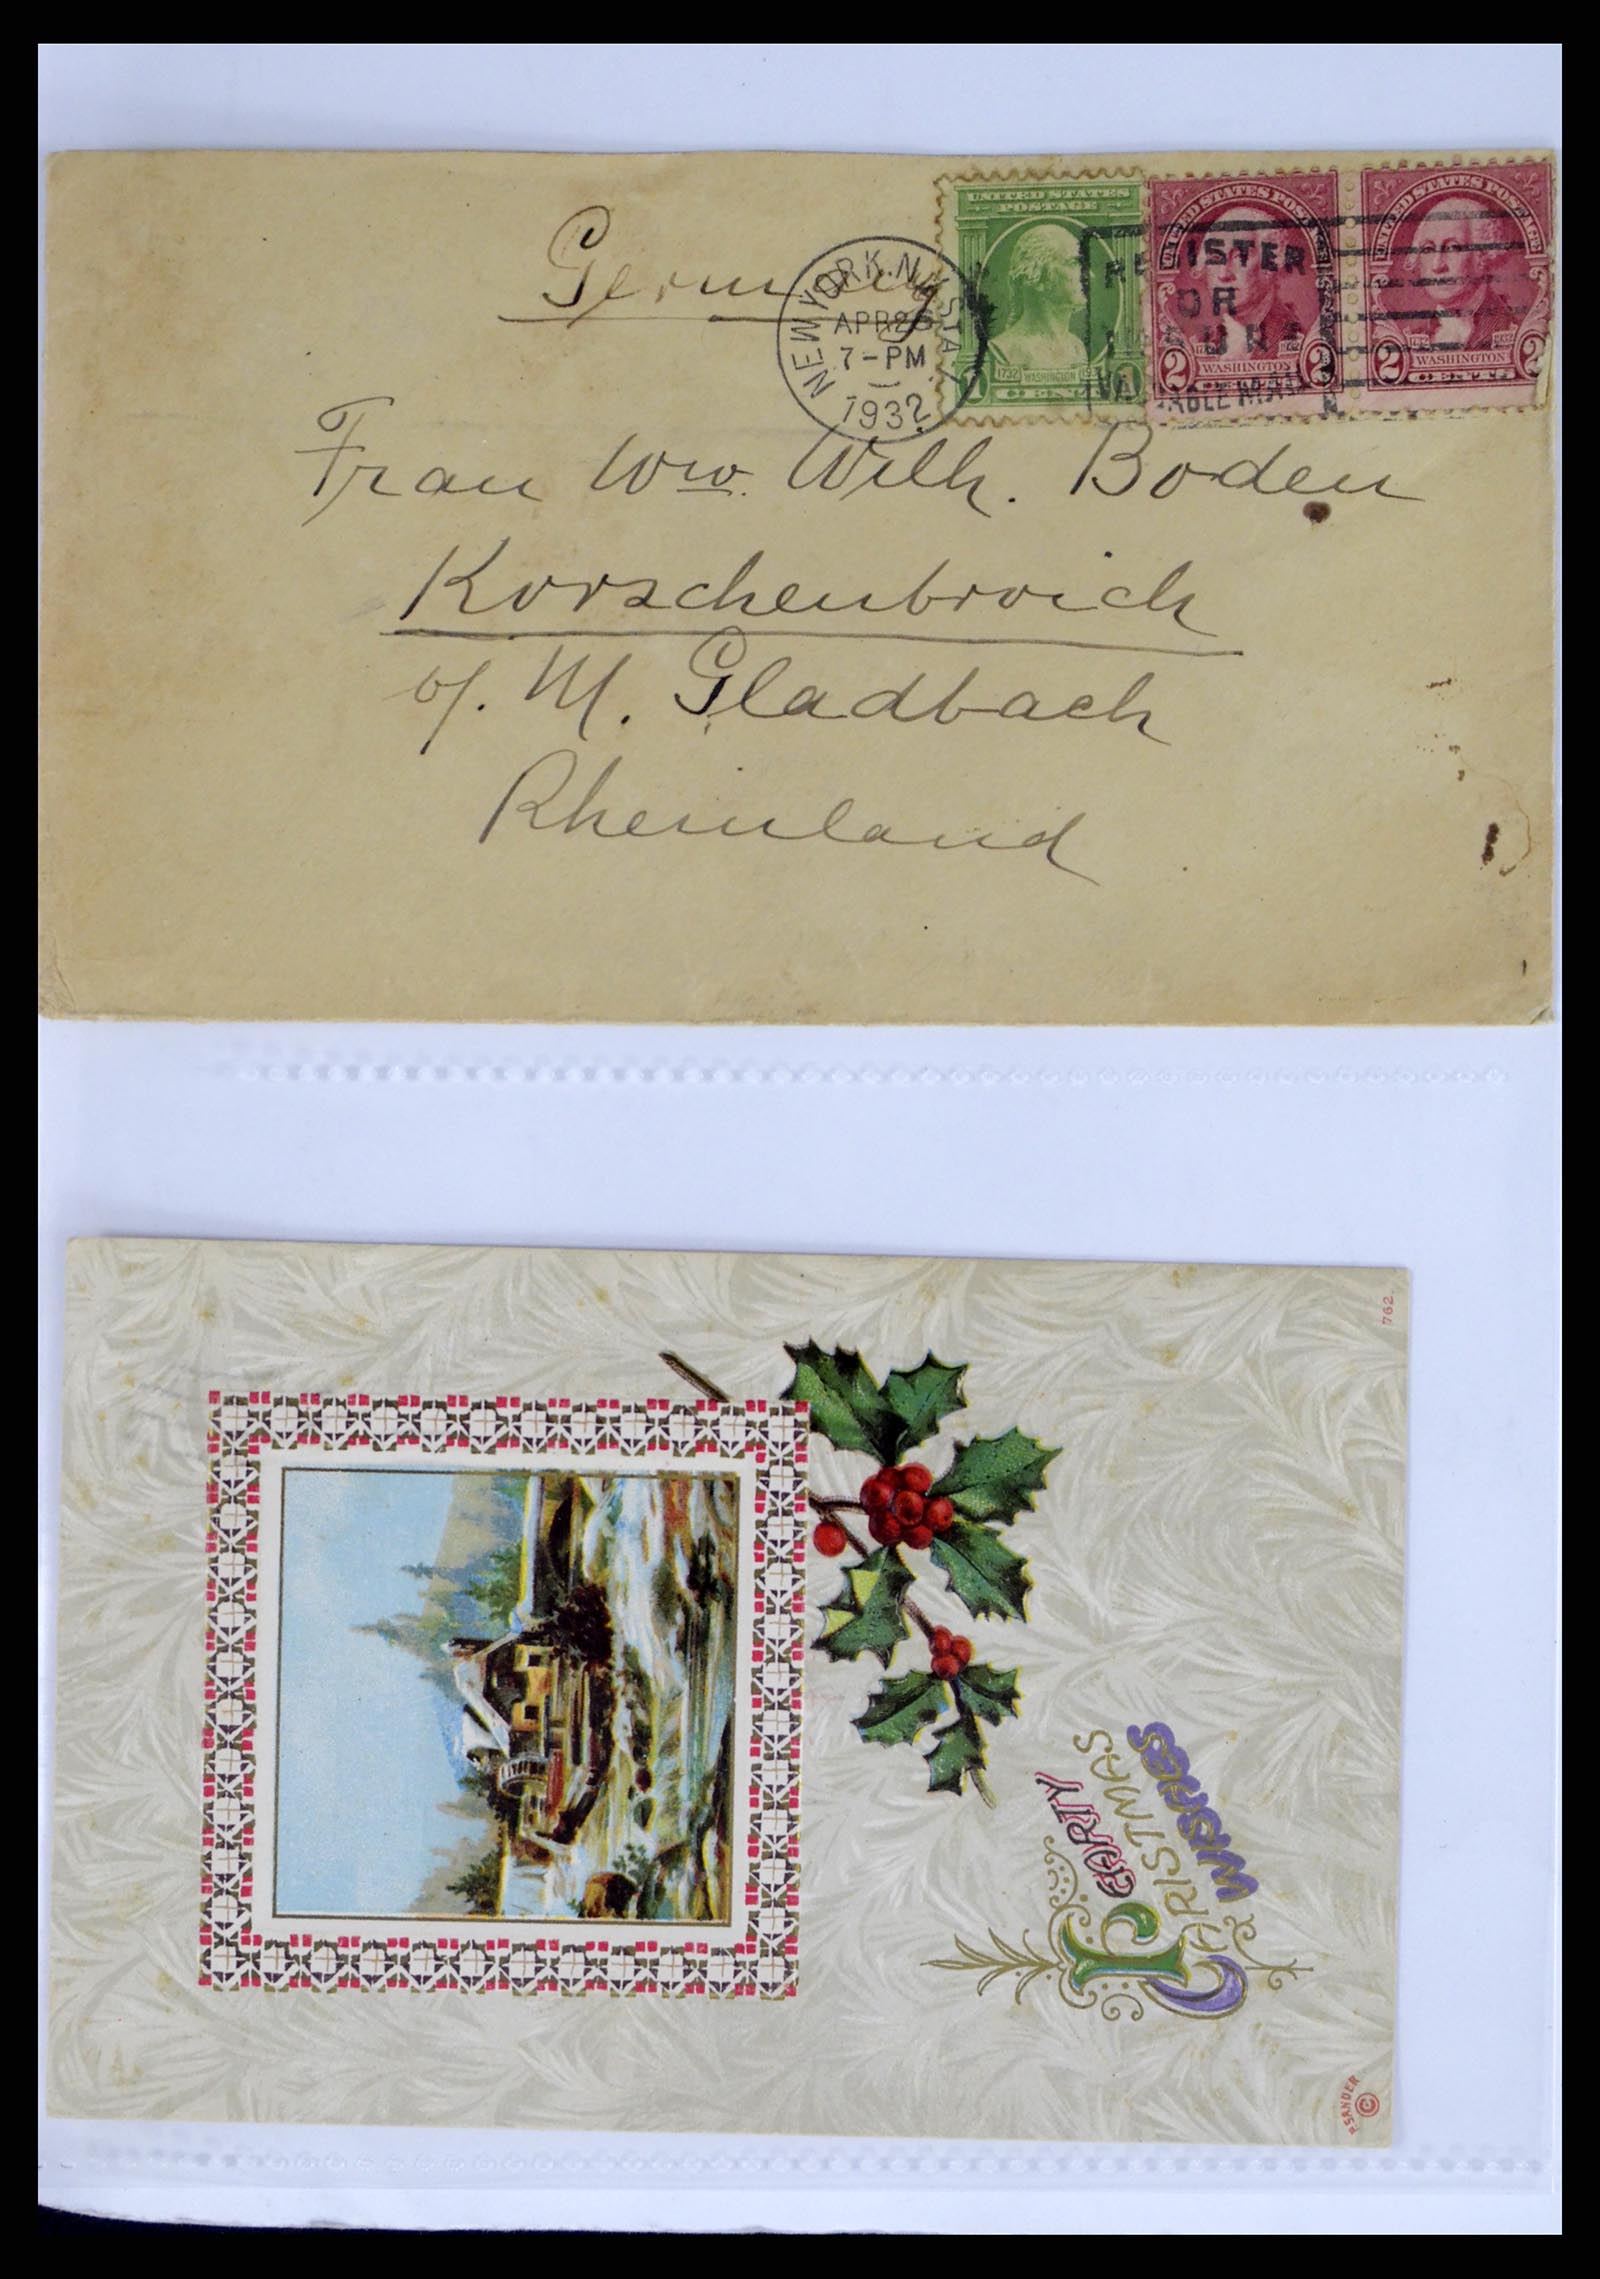 Germany
NEW YORK, N.Y. STA.
APR 26
7-PM
1932
UNITED STATES
POSTAGE
1732 WASHINGTON
1 CENT
REGISTER
OR
INSURE
VALUABLE MAIL
UNITED STATES POSTAGE
2 WASHINGTON 2
CENTS
UNITED STATES POSTAGE
1732 1932
2 WASHINGTON 2
CENTS
Frau Ww. Wilh. Boden
Korschenbroich
b/. M. Gladbach
Rheinland
762.
HEARTY
CHRISTMAS
WISHES
P. SANDER
©